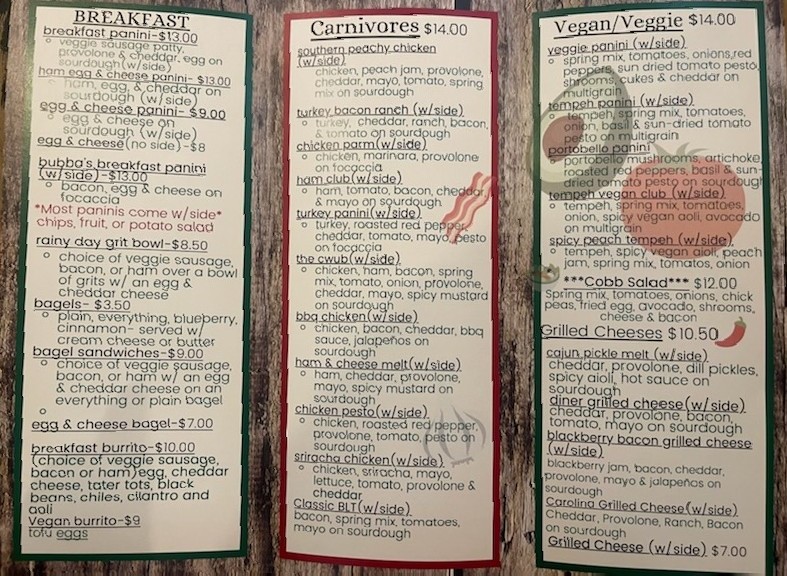 BREAKFAST
breakfast panini-$13.00
veggie sausage patty,
provolone & cheddar, egg on
sourdough(w/side)
ham egg & cheese panini- $13.00
ham, egg, & cheddar on
sourdough (w/side)
egg & cheese panini- $9.00
egg & cheese on
sourdough (w/side)
egg & cheese(no side)-$8
bubba's breakfast panini
(w/side)-$13.00
bacon, egg & cheese on
focaccia
*Most paninis come w/side*
chips, fruit, or potato salad
rainy day grit bowl-$8.50
choice of veggie sausage,
bacon, or ham over a bowl
of grits w/ an egg &
cheddar cheese
bagels- $3.50
plain, everything, blueberry,
cinnamon- served w/
cream cheese or butter
bagel sandwiches-$9.00
choice of veggie sausage,
bacon, or ham w/ an egg
& cheddar cheese on an
everything or plain bagel
egg & cheese bagel-$7.00
breakfast burrito-$10.00
(choice of veggie sausage,
bacon or ham)egg, cheddar
cheese, tater tots, black
beans, chiles, cilantro and
aoli
Vegan burrito-$9
tofu eggs
Carnivores $14.00
southern peachy chicken
(w/side)
chicken, peach jam, provolone,
cheddar, mayo, tomato, spring
mix on sourdough
turkey bacon ranch (w/side)
turkey, cheddar, ranch, bacon,
& tomato on sourdough
chicken parm(w/side)
chicken, marinara, provolone
on focaccia
ham club(w/side)
ham, tomato, bacon, cheddar,
& mayo on sourdough
turkey panini(w/side)
turkey, roasted red pepper,
cheddar, tomato, mayo, pesto
on focaccia
the cwub(w/side)
chicken, ham, bacon, spring
mix, tomato, onion, provolone,
cheddar, mayo, spicy mustard
on sourdough
bbq chicken(w/side)
chicken, bacon, cheddar, bbq
sauce, jalapeños on
sourdough
ham & cheese melt(w/side)
ham, cheddar, provolone,
mayo, spicy mustard on
sourdough
chicken pesto(w/side)
chicken, roasted red pepper,
provolone, tomato, pesto on
sourdough
sriracha chicken(w/side)
chicken, sriracha, mayo,
lettuce, tomato, provolone &
cheddar
Classic BLT(w/side)
bacon, spring mix, tomatoes,
mayo on sourdough
Vegan/Veggie $14.00
veggie panini (w/side)
spring mix, tomatoes, onions,red
peppers, sun dried tomato pesto,
shrooms, cukes & cheddar on
multigrain
tempeh panini (w/side)
tempeh, spring mix, tomatoes,
onion, basil & sun-dried tomato
pesto on multigrain
portobello panini
portobello mushrooms, artichoke,
roasted red peppers, basil & sun-
dried tomato pesto on sourdough
tempeh vegan club (w/side)
tempeh, spring mix, tomatoes,
onion, spicy vegan aoli, avocado
on multigrain
spicy peach tempeh (w/side)
tempeh, spicy vegan aioli, peach
jam, spring mix, tomatos, onion
***Cobb Salad*** $12.00
Spring mix, tomatoes, onions, chick
peas, fried egg, avocado, shrooms,
cheese & bacon
Grilled Cheeses $10.50
cajun pickle melt (w/side)
cheddar, provolone, dill pickles,
spicy aioli, hot sauce on
sourdough
diner grilled cheese(w/side)
cheddar, provolone, bacon,
tomato, mayo on sourdough
blackberry bacon grilled cheese
(w/side)
blackberry jam, bacon, cheddar,
provolone, mayo & jalapeños on
sourdough
Carolina Grilled Cheese(w/side)
Cheddar, Provolone, Ranch, Bacon
on sourdough
Grilled Cheese (w/side) $7.00